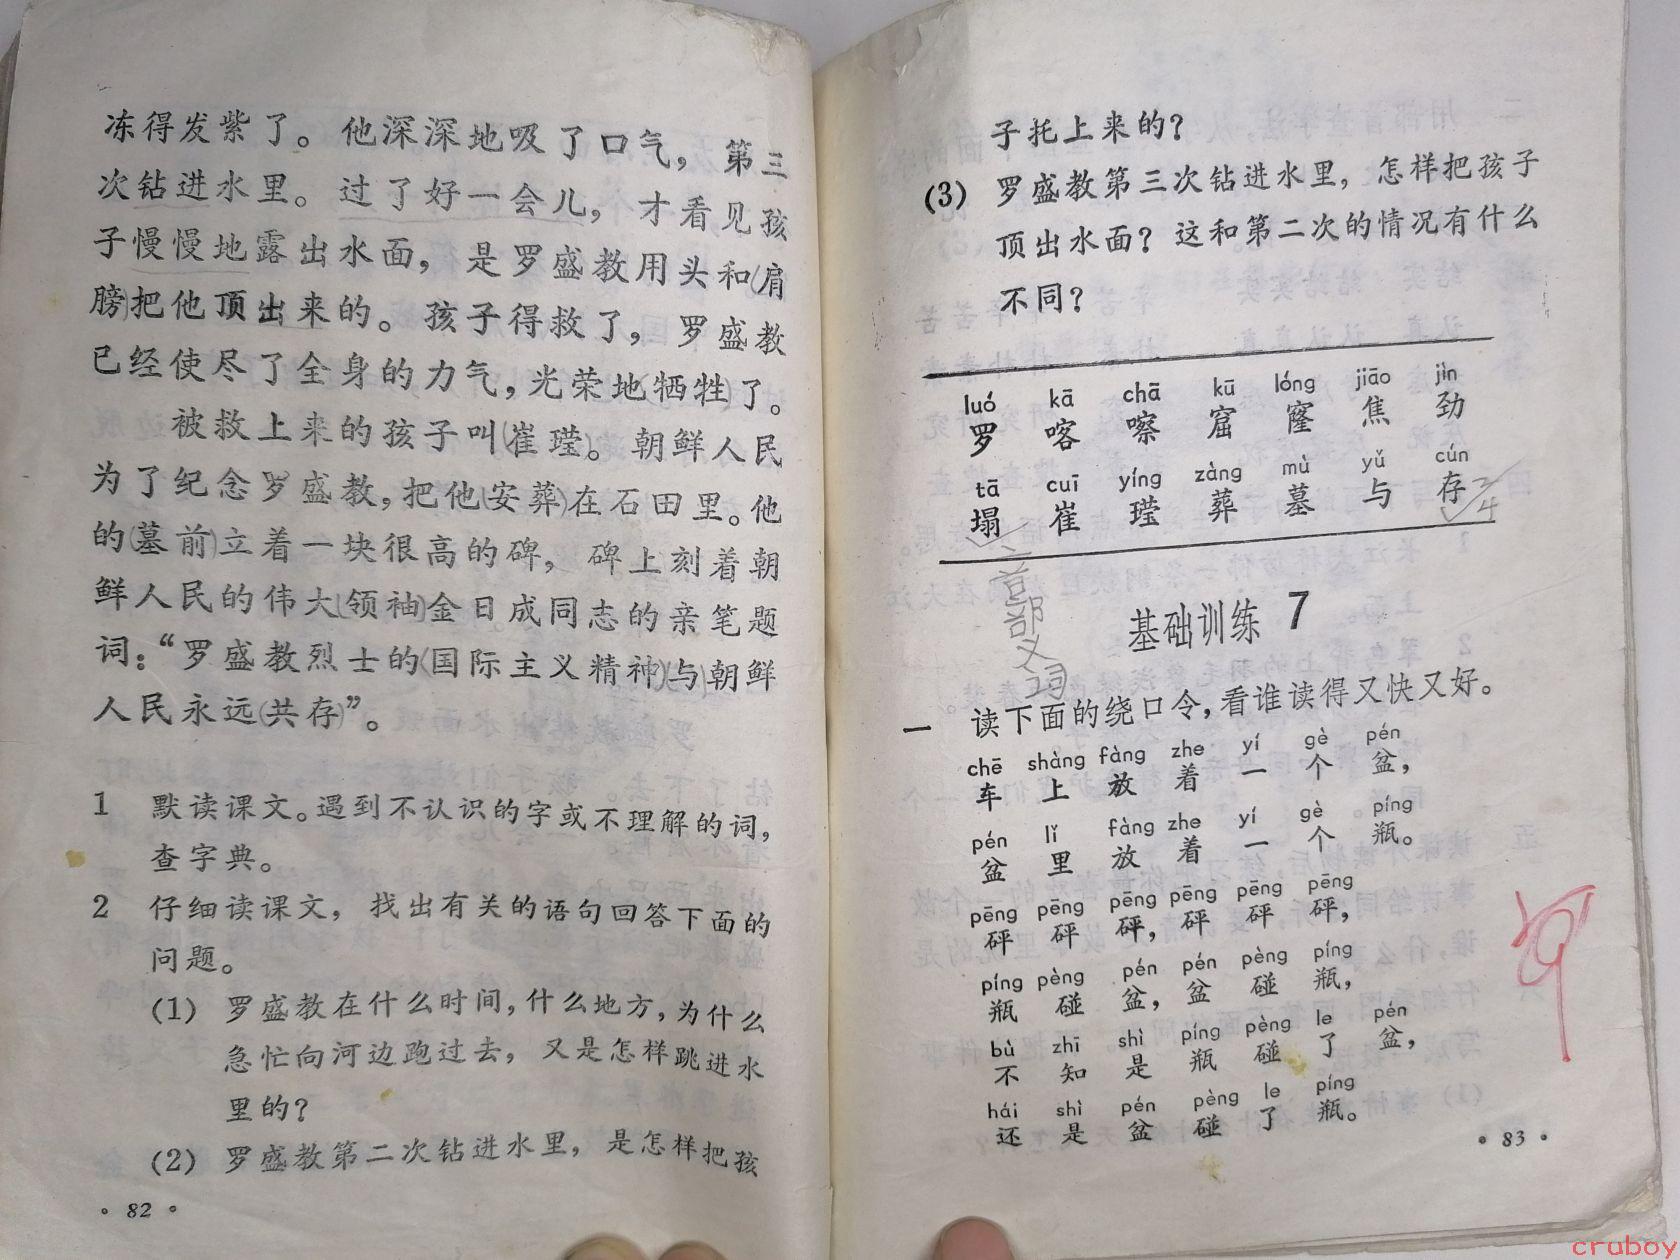 冻得发紫了。他深深地吸了口气，第三
次钻进水里。过了好一会儿，才看见孩
子慢慢地露出水面，是罗盛教用头和(肩
膀)把他顶出来的。孩子得救了，罗盛教
已经使尽了全身的力气，光荣地(牺牲)了。
被救上来的孩子叫(崔瑩)。朝鲜人民
为了纪念罗盛教，把他(安葬)在石田里。他
的(墓前)立着一块很高的碑，碑上刻着朝
鲜人民的伟大(领袖)金日成同志的亲笔题
词：“罗盛教烈士的(国际主义精神)与朝鲜
人民永远(共存)”。
1 默读课文。遇到不认识的字或不理解的词，
查字典。
2 仔细读课文，找出有关的语句回答下面的
问题。
(1) 罗盛教在什么时间，什么地方，为什么
急忙向河边跑过去，又是怎样跳进水
里的？
(2) 罗盛教第二次钻进水里，是怎样把孩
• 82 •
子托上来的？
(3) 罗盛教第三次钻进水里，怎样把孩子
顶出水面？这和第二次的情况有什么
不同？
luó kā chā kū lóng jiāo jìn
罗 喀 嚓 窟 窿 焦 劲
tā cuī yíng zàng mù yǔ cún
塌 崔 瑩 葬 墓 与 存
二音部义词
基础训练 7
一 读下面的绕口令，看谁读得又快又好。
chē shàng fàng zhe yí gè pén
车 上 放 着 一 个 盆，
pén lǐ fàng zhe yí gè píng
盆 里 放 着 一 个 瓶。
pēng pēng pēng pēng pēng pēng
砰 砰 砰，砰 砰 砰，
píng pèng pén pén pèng píng
瓶 碰 盆，盆 碰 瓶，
bù zhī shì píng pèng le pén
不 知 是 瓶 碰 了 盆，
hái shì pén pèng le píng
还 是 盆 碰 了 瓶。
• 83 •
cruboy